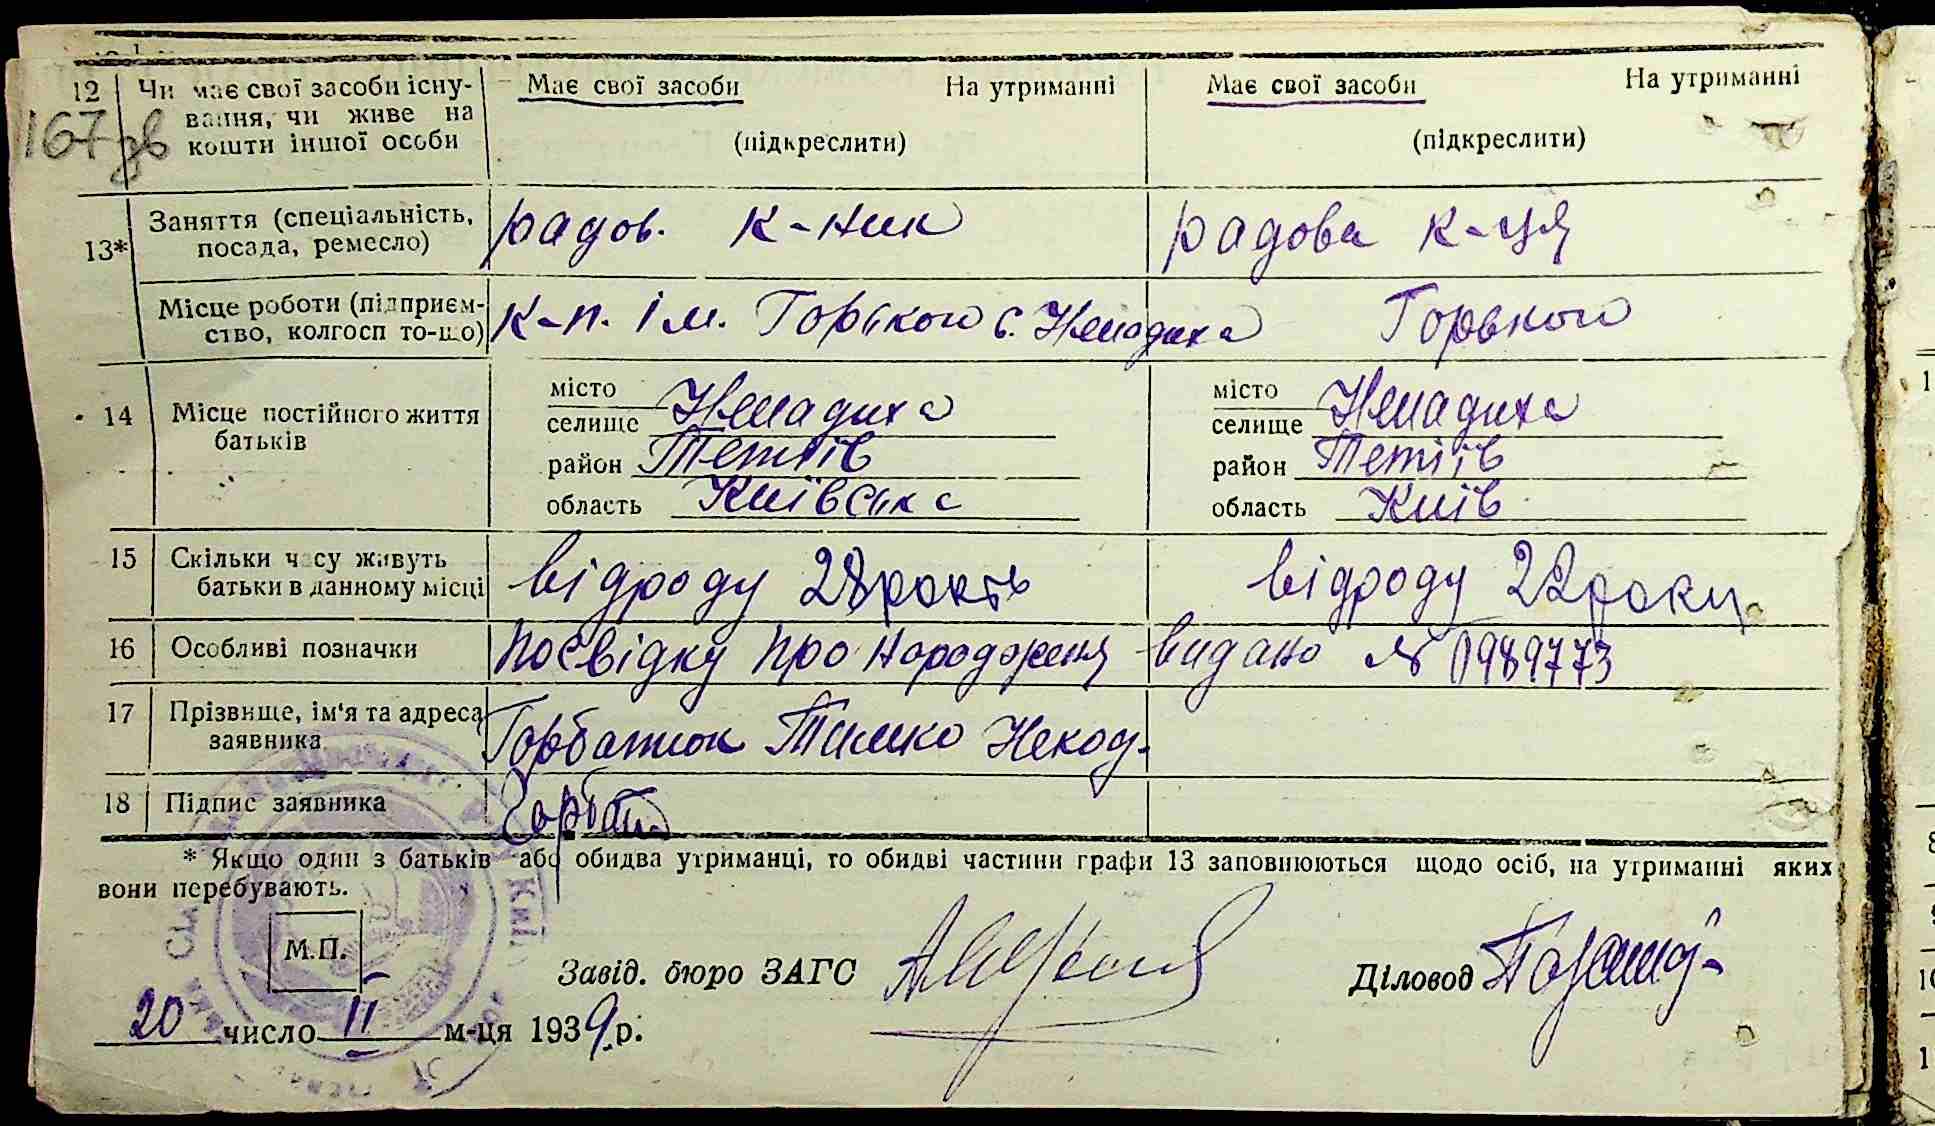 12 Чи має свої засоби існу- Має свої засоби На утриманні Має свої засоби На утриманні
вання, чи живе на
кошти іншої особи (підкреслити) (підкреслити)
167 зв
13* Заняття (спеціальність, радов. к-ник радова к-ця
посада, ремесло)
Місце роботи (підприєм- к-п. ім. Горького с. Ненадиха Горького
ство, колгосп то-що)
14 Місце постійного життя місто місто
батьків селище Ненадиха селище Ненадиха
район Тетіїв район Тетіїв
область Київська область Київ
15 Скільки часу живуть відроду 28 років відроду 22 роки
батьки в данному місці
16 Особливі позначки посвідку про народження видано № 0989773
17 Прізвище, ім'я та адреса Горбатюк Тимко Некод.
заявника
18 Підпис заявника Горбат.
* Якщо один з батьків або обидва утриманці, то обидві частини графи 13 заповнюються щодо осіб, на утриманні яких
вони перебувають.
М.П.
Завід. бюро ЗАГС Діловод
20 число II м-ця 1939 р.